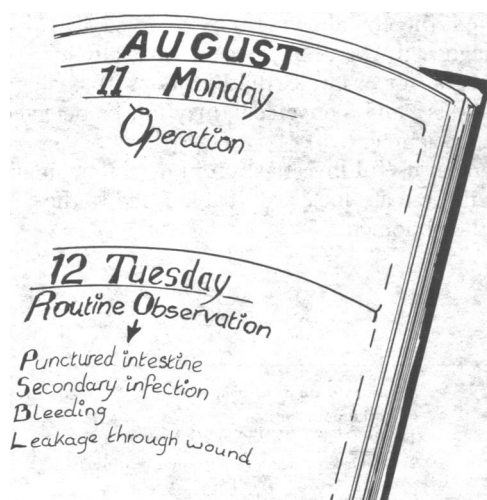 AUGUST
11 Monday
Operation
12 Tuesday
Routine Observation
Punctured intestine
Secondary infection
Bleeding
Leakage through wound